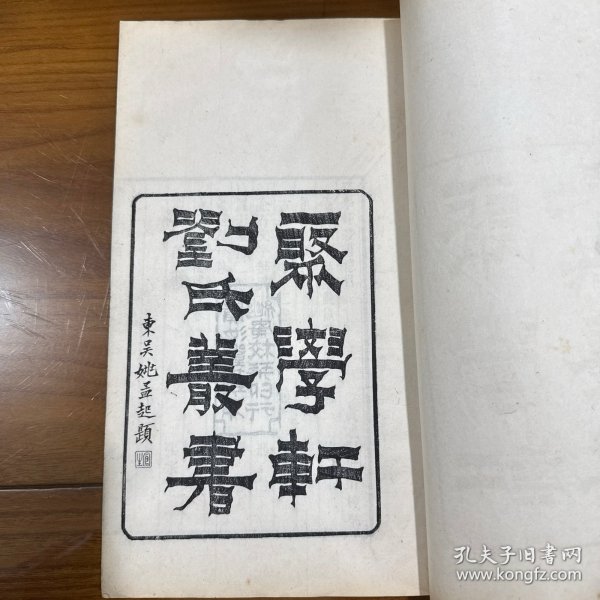 聚學軒
劉氏叢書
東吴姚孟起題
孔夫子旧书网
www.kongfz.com